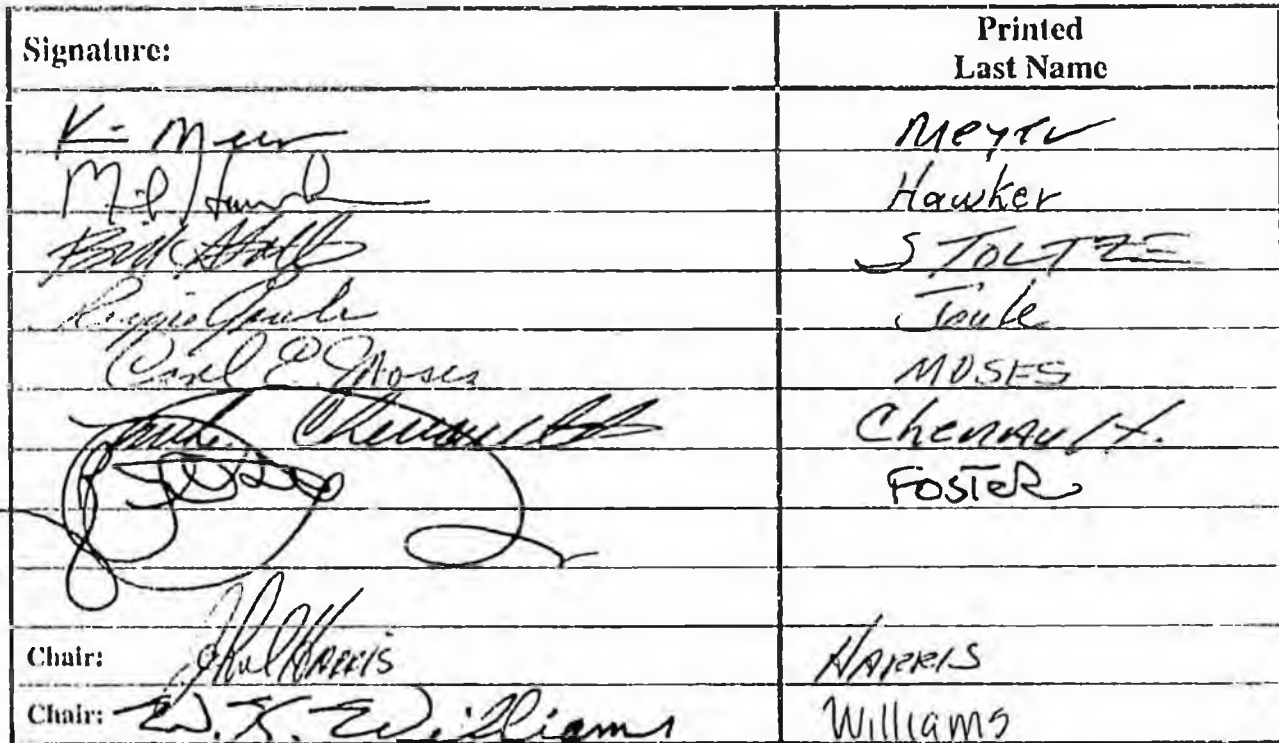 Signature: Printed
Last Name
K- Meyer Meyer
Hawker
Bill STOLTZE
Reggie Joule Joule
Carl E. Moses MOSES
Chenault Chenault.
FOSTER
Chair: John Harris HARRIS
Chair: W. K. Williams Williams